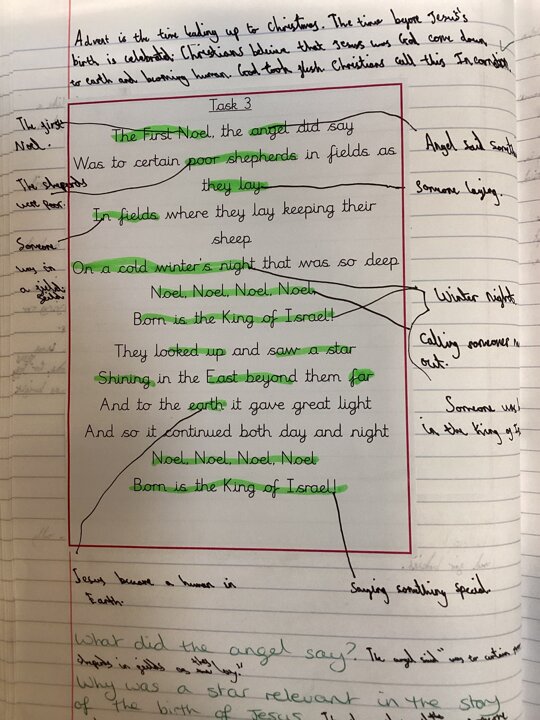 Advent is the time leading up to Christmas. The time before Jesus's
birth is celebrated. Christians believe that Jesus was God come down
to earth and becoming human. God took flesh Christians call this
Task 3
The First Noel, the angel did say
Was to certain poor shepherds in fields as
they lay.
In fields where they lay keeping their
sheep
On a cold winter's night that was so deep
Noel, Noel, Noel, Noel
Born is the King of Israel!
They looked up and saw a star
Shining in the East beyond them far
And to the earth it gave great light
And so it continued both day and night
Noel, Noel, Noel, Noel
Born is the King of Israel!
The first
Noel.
The
were poor.
Someone
was in
a
Angel said
Someone laying.
Winter night
Calling
out.
Someone was
in the King of
Jesus became a human in
Earth.
Saying something special
What did the angel say? The angel said "was to certain
in fields as they lay."
Why was a star relevant in the story
of the birth of Jesus